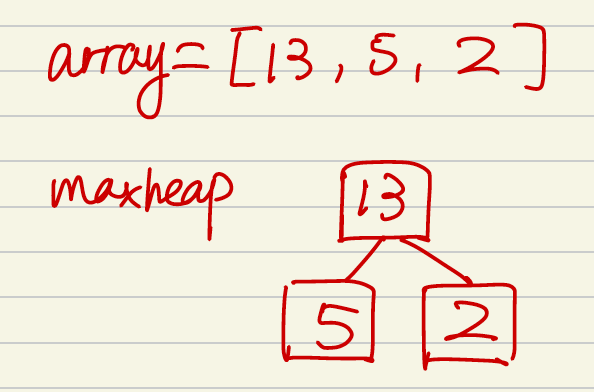 array= [13, 5, 2]
maxheap
13
5 2